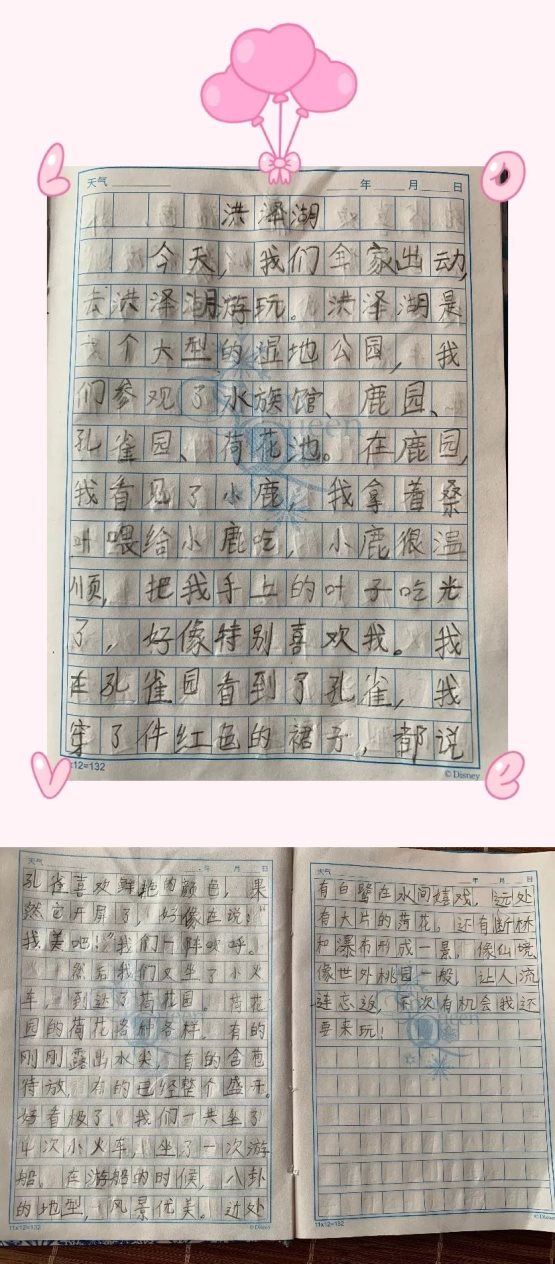 天气 年 月 日
洪泽湖
今天，我们全家出动，
去洪泽湖游玩。洪泽湖是
个大型的湿地公园，我
们参观了水族馆、鹿园、
孔雀园、荷花池。在鹿园，
我看见了小鹿，我拿着桑
叶喂给小鹿吃，小鹿很温
顺，把我手上的叶子吃光
了，好像特别喜欢我。我
在孔雀园看到了孔雀，我
穿了件红色的裙子，都说
x12=132 © Disney
天气 年 月 日
孔雀喜欢鲜艳的颜色，果
然它开屏了，好像在说：“
我美吧！”我们一阵欢呼。
然后我们又坐了小火
车，到达了荷花园。荷花
园的荷花各种各样，有的
刚刚露出水尖，有的含苞
待放，有的已经整个盛开。
好看极了。我们一共坐了
4次小火车，坐了一次游
船。在游船的时候，八卦
的地型，风景优美。近处
11x12=132 © Disney
年 月 日
有白鹭在水间嬉戏，远处
有大片的荷花，还有断林
和瀑布形成一景，像仙境，
像世外桃园一般，让人流
连忘返，下次有机会我还
要来玩！
11x12=132 © Disney